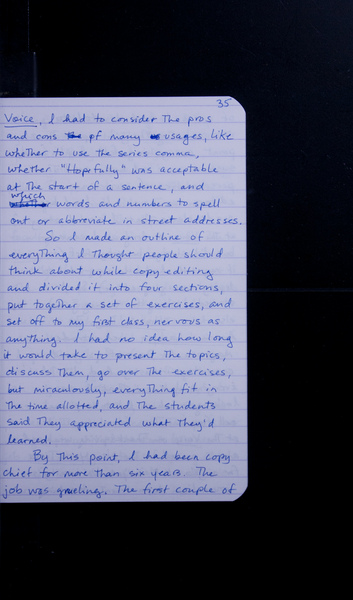 35
Voice, I had to consider the pros
and cons of many usages, like
whether to use the series comma,
whether "Hopefully" was acceptable
at the start of a sentence, and
which
words and numbers to spell
out or abbreviate in street addresses.
So I made an outline of
everything I thought people should
think about while copy editing
and divided it into four sections,
put together a set of exercises, and
set off to my first class, nervous as
anything. I had no idea how long
it would take to present the topics,
discuss them, go over the exercises,
but miraculously, everything fit in
the time allotted, and the students
said they appreciated what they'd
learned.
By this point, I had been copy
chief for more than six years. The
job was grueling. The first couple of